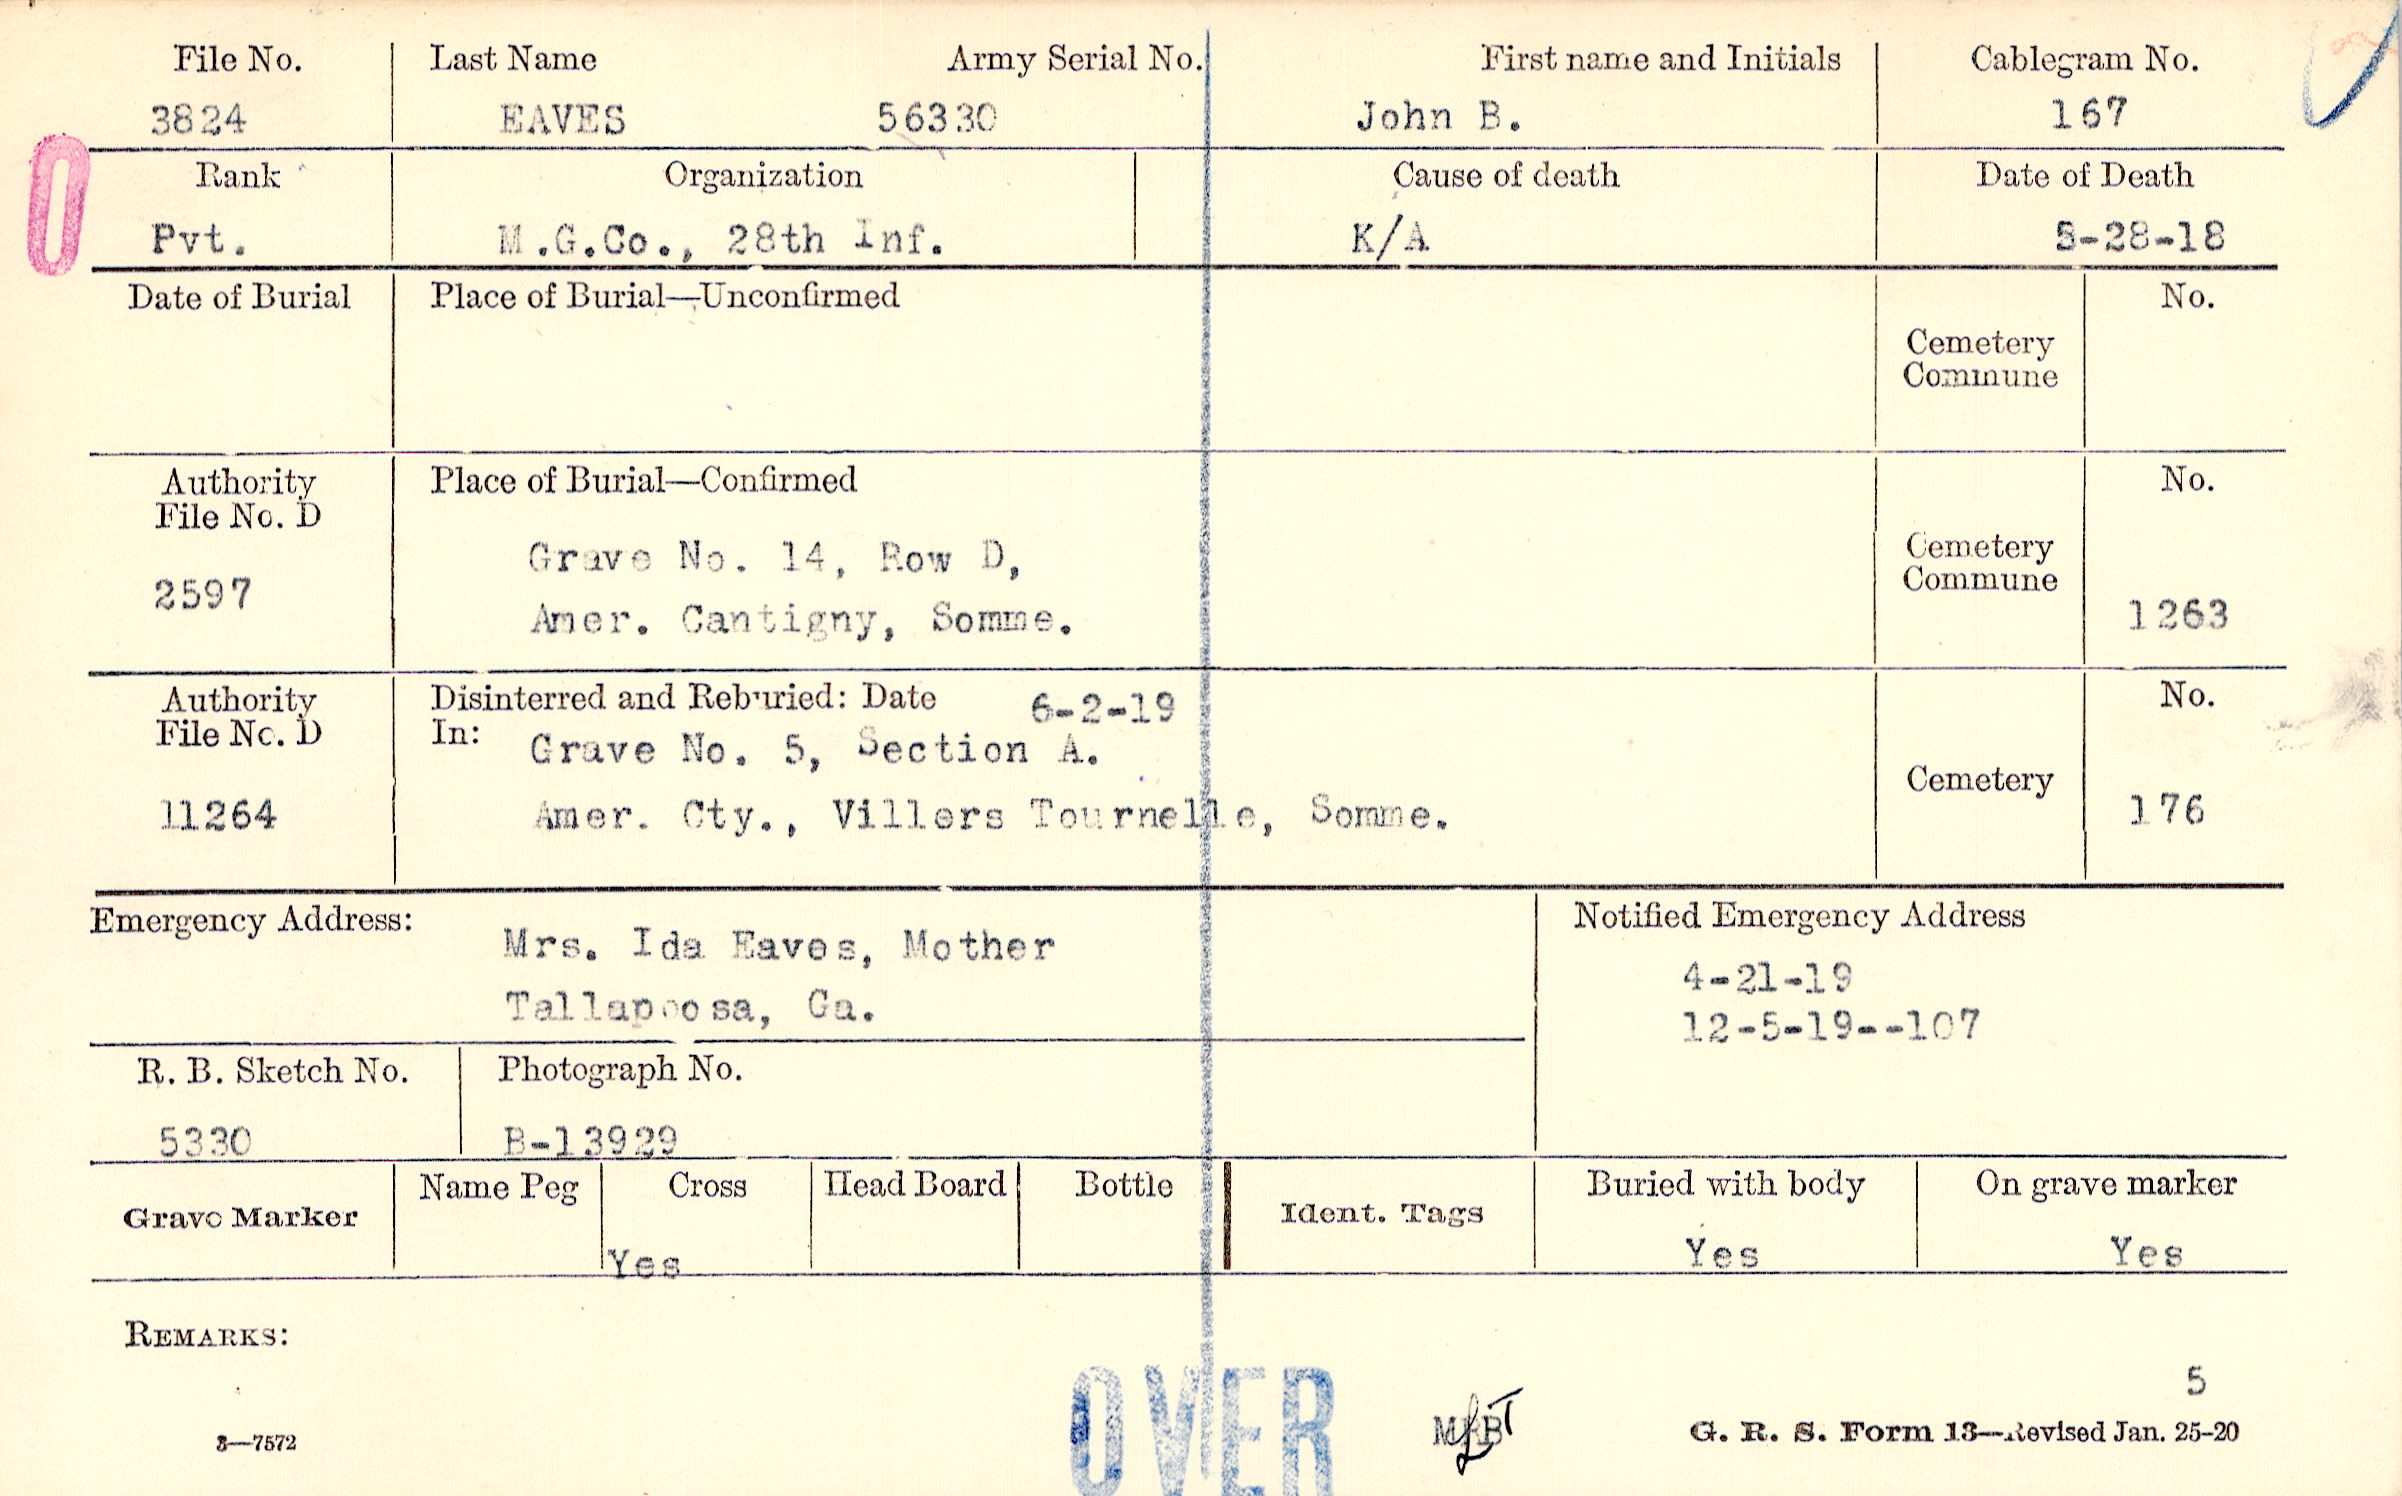 File No. Last Name Army Serial No. First name and Initials Cablegram No.
3824 EAVES 56330 John B. 167
Rank Organization Cause of death Date of Death
Pvt. M.G.Co., 28th Inf. K/A 5-28-18
Date of Burial Place of Burial—Unconfirmed No.
Cemetery
Commune
Authority Place of Burial—Confirmed No.
File No. D
Grave No. 14, Row D, Cemetery
2597 Amer. Cantigny, Somme. Commune 1263
Authority Disinterred and Reburied: Date 6-2-19 No.
File No. D In: Grave No. 5, Section A.
Cemetery
11264 Amer. Cty., Villers Tournelle, Somme. 176
Emergency Address: Notified Emergency Address
Mrs. Ida Eaves, Mother 4-21-19
Tallapoosa, Ga. 12-5-19--107
R. B. Sketch No. Photograph No.
5330 B-13929
Grave Marker Name Peg Cross Head Board Bottle Ident. Tags Buried with body On grave marker
Yes Yes Yes
REMARKS:
5
3—7572 OVER G. R. S. Form 13—Revised Jan. 25-20
0